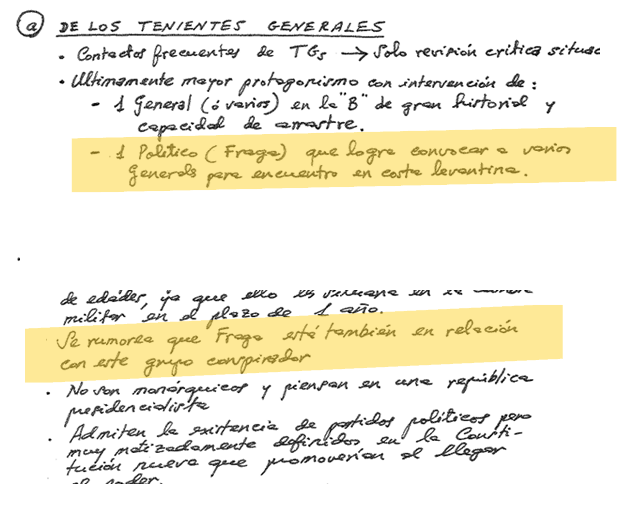 a DE LOS TENIENTES GENERALES
• Contactos frecuentes de TGs → Solo revisión crítica situac
• Ultimamente mayor protagonismo con intervención de:
- 1 General (ó varios) en la "B" de gran historial y
capacidad de arrastre.
- 1 Político (Fraga) que logra convocar a varios
Generals para encuentro en costa levantina.
de edades, ya que ello es
militar en el plazo de 1 año.
· Se rumorea que Fraga está también en relación
con este grupo conspirador
• No son monárquicos y piensan en una república
presidencialista
• Admiten la existencia de partidos políticos pero
muy matizadamente definidos en la Consti-
tución nueva que promoverían al llegar
al poder.